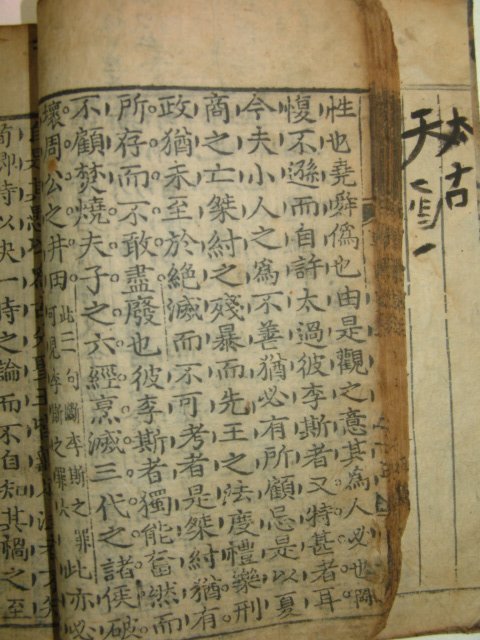 性也堯舜偽也由是觀之意其為人必也剛
愎不遜而自許太過彼李斯者又特甚者耳
今夫小人之為不善猶必有所顧忌是以夏
商之亡桀紂之殘暴而先王之法度禮樂刑
政猶未至於絕滅而不可考者是桀紂猶有
所存而不敢盡廢也彼李斯者獨能奮然而
不顧焚燒夫子之六經烹滅三代之諸侯破
壞周公之井田此二句斷李斯之罪此亦必
時之論而不自知其禍之至